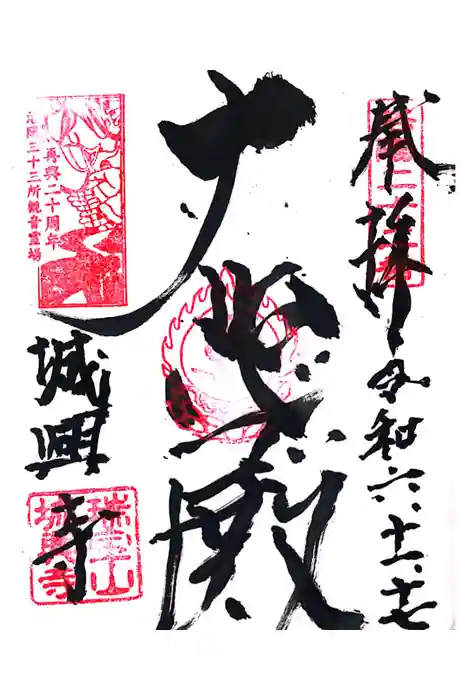 奉拝 令和六、十一、十七
大悲殿
再興二十周年
洛陽三十三所観音霊場
城興寺
瑞宝山
城興寺